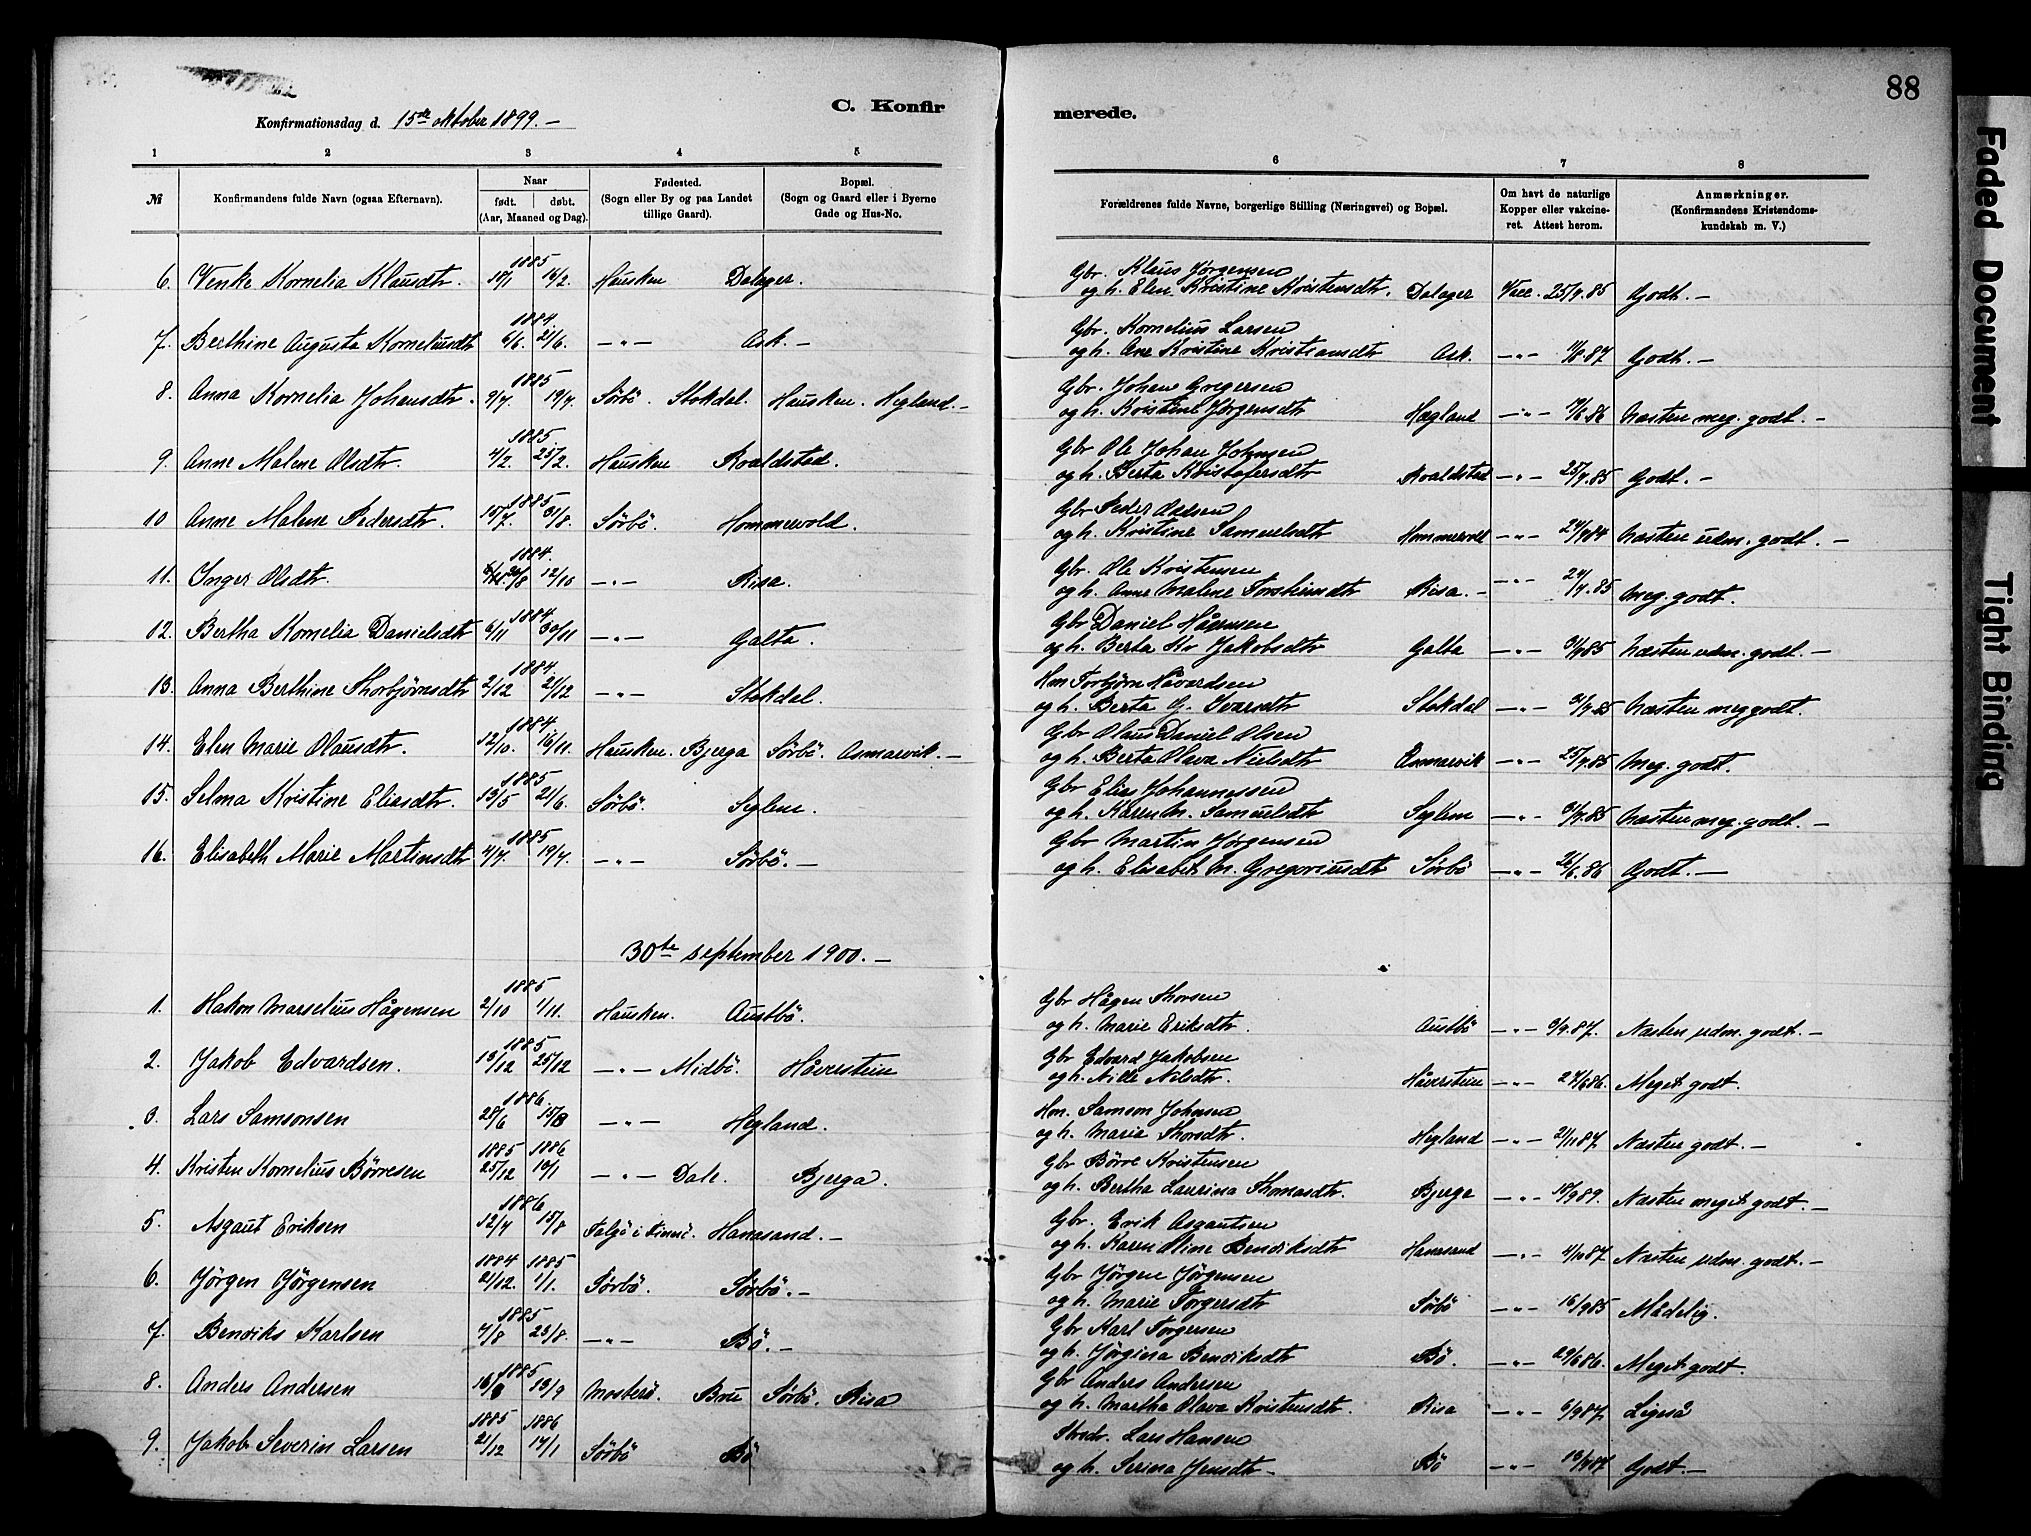 88
C. Konfirmerede.
Konfirmationsdag d. 15de oktober 1899. —
1 2 3 4 5 6 7 8
№ Konfirmandens fulde Navn (ogsaa Efternavn). Naar født. døbt. (Aar, Maaned og Dag). Fødested. (Sogn eller By og paa Landet tillige Gaard). Bopæl. (Sogn og Gaard eller i Byerne Gade og Hus-No. Forældrenes fulde Navne, borgerlige Stilling (Næringsvei) og Bopæl. Om havt de naturlige Kopper eller vakcineret. Attest herom. Anmærkninger. (Konfirmandens Kristendomskundskab m. V.)
1885 Gbr. Klaus Jørgensen
6. Venke Kornelia Klausdtr. 14/2. Hausken Dalager. og h. Elen Kristine Kristensdtr. Dalager Vacc. 25/9.85 Godt. —
1884 Gbr. Kornelius Larsen
7. Berthine Augusta Korneliusdtr 6/6. 21/6. —„— Ask. — og h. Ane Kristine Kristiansdtr Ask. —„— 87 Godt. —
1885 Gbr. Johan Gregersen
8. Anna Kornelia Johansdtr. 9/7. 19/7. Sörbö. Stokdal. Hausken. Hegland. — og h. Kristine Jørgensdtr Hægland —„— 86 Næsten meg. godt. —
1885. Gbr Ole Johan Johnsen
9. Anne Malene Olsdtr. 4/2. 25/2. Hausken Roaldstad. og h. Berta Kristofersdtr Roaldstad —„— 25/9.85 Godt. —
1885 Gbr Peder
10 Anne Malene Pedersdtr. 15/7. 31/8. Sörbö. Hommervold. og h. Kristine Samuelsdtr —„— Næsten udm. godt. —
1884. Gbr. Ole Kristensen
11. Inger Olsdtr. 12/10 —„— Risa. og h. Anne Malene Torsteinsdtr Risa. —„— 85 Meg. godt.
1884 Gbr Daniel Hågensen
12. Bertha Kornelia Danielsdtr 6/11 30/11 —„— Galta. og h. Berta Kr Jakobsdtr Galta —„— 85 Næsten udm. godt. —
1884. Hm Torbjörn Håvardsen
13. Anna Berthine Thorbjörnsdtr 2/12 21/12 —„— Stokdal. og h. Berta G. Ivarsdtr Stokdal —„— 85 Næsten meg godt.
1884. Gbr Olaus Daniel Olsen
14. Elen Marie Olausdtr. 12/10. 16/11. Hausken. Bjerga Sörbö. Asmarvik. — og h. Berta Olava Nielsdtr Asmarvik —„— 25/9.85 Meg. godt.
1885 Gbr Elias Johannessen
15. Selma Kristine Eliasdtr. 13/5 21/6. Sörbö. Seglem. og h. Karen M. Samuelsdtr Seglem —„— 85 Næsten meg. godt. —
1885 Gbr Martin Jørgensen
16. Elisabeth Marie Martinsdtr 4/7. 19/7. —„— Sörbö. — og h. Elisabet M. Gregoriusdtr Sörbö —„— 26/6.86 Godt. —
30te september 1900. —
1885 Gbr Hågen Thorsen
1. Hakon Marselius Hågensen 2/10 1/11. Hausken. Austbö. og h. Marie Eriksdtr. Austbö —„— 3/9.87. Næsten udm. godt. —
1885 Gbr Edvard Jakobsen
2. Jakob Edvardsen. 13/12 25/12 —„— Midbö. Håverstein og h. Nille Nilsdtr. Håverstein —„— 24/6 86. Meget godt.
1886. Hm. Samson Johnsen
3. Lars Samsonsen 28/6 15/8 —„— Hegland. og h. Marie Thorsdtr. Hegland —„— 21/11 87. Næsten godt. —
1885 1886 Gbr Börre Kristensen
4. Kristen Kornelius Börresen 25/12 10/1 —„— Dale. Bjerga. og h. Bertha Laurina Thomasdtr. Bjerga —„— 18/9 89. Næsten meget godt. —
1886 Gbr. Erik Asgautsen
5. Asgaut Eriksen 12/7 15/8 Talgö i Finnö. Hanasand. — og h. Karen Oline Bendiksdtr Hanasand —„— 4/10 87 Næsten udm. godt. —
1884 1885 Gbr Jörgen Jörgensen
6. Jörgen Jörgensen 21/12. 1/1. Sörbö. Sörbö. — og h. Marie Torgersdtr Sörbö —„— 16/9 85 Mådelig.
1885 Gbr Karl Torgersen
7. Bendiks Karlsen 7/8 23/8. —„— Bö. — og h. Jörgina Bendiksdtr Bö. —„— 29/6 86. Meget godt.
1885 Gbr Anders Andersen
8. Anders Andersen 16/8 13/9 Mosterö. Bru Sörbö. Risa og h. Martha Olava Kristensdtr. Risa —„— 6/9 87. Ligeså
1885 1886 Lars Hansen
9. Jakob Severin Larsen 21/12 17/1 Sörbö Bö og h. Serina Jensdtr — Bö —„— 87 Godt. —
Faded Document
Tight Binding